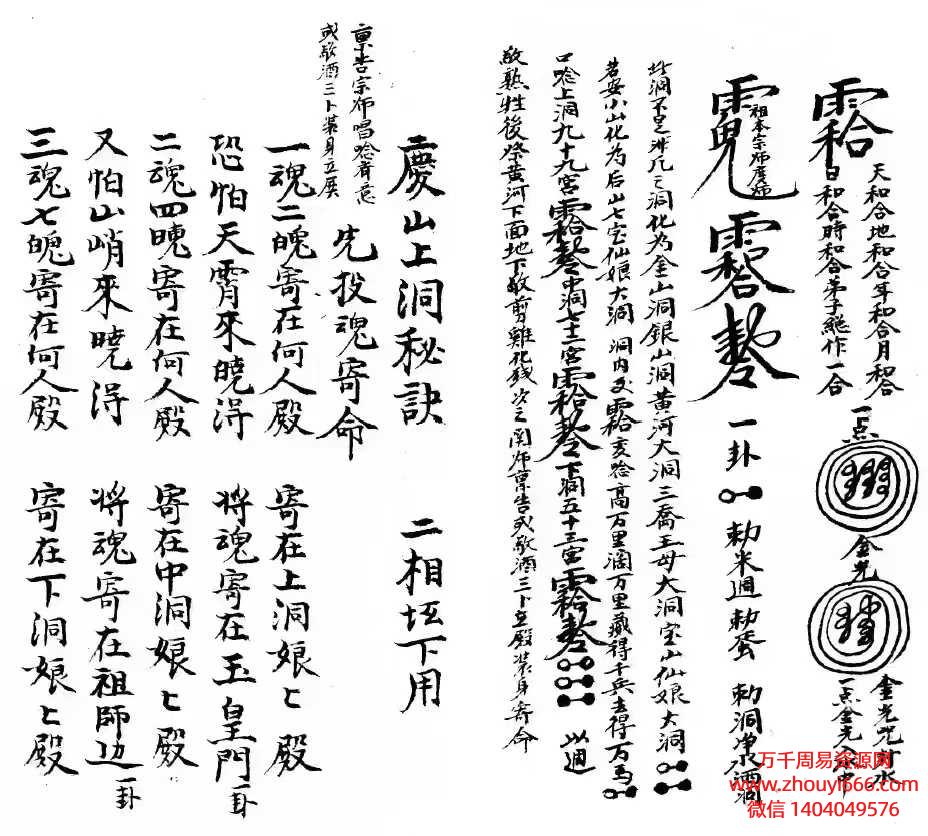 天和合地和合年和合月和合
日和合時和合弟子総作一合
一点
金光
金光咒
一点金光入
祖本宗師度
一卦
勅米
勅洞净酒洞
此洞不是非凡之洞化为金山洞銀山洞黄河大洞三喬王母大洞宝山仙娘大洞
若安小山化为后山七宝仙娘大洞 洞内 念高万里濶万里藏得千兵去得万馬
口唸上洞九十九宫 中洞七十二宫 下洞五十三宫
敬熟牲後祭黄河下面地下敬剪雞化 次之 師禀告或敬酒三卜立殿装身寄命
慶山上洞秘訣 二相 下用
禀告宗師唱唸
或敬酒三卜装身立殿
先投魂寄命
一魂二魄寄在何人殿 寄在上洞娘匕殿
恐怕天霄來曉淂 将魂寄在玉皇門 一卦
二魂四魄寄在何人殿 寄在中洞娘匕殿
又怕山峭來曉淂 将魂寄在祖師边 一卦
三魂七魄寄在何人殿 寄在下洞娘匕殿
万千周易资源网
www.zhouyi666.com
微信 1404049576